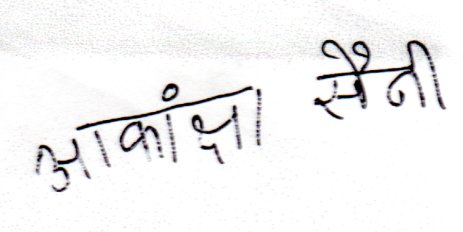 आकांक्षा सैनी